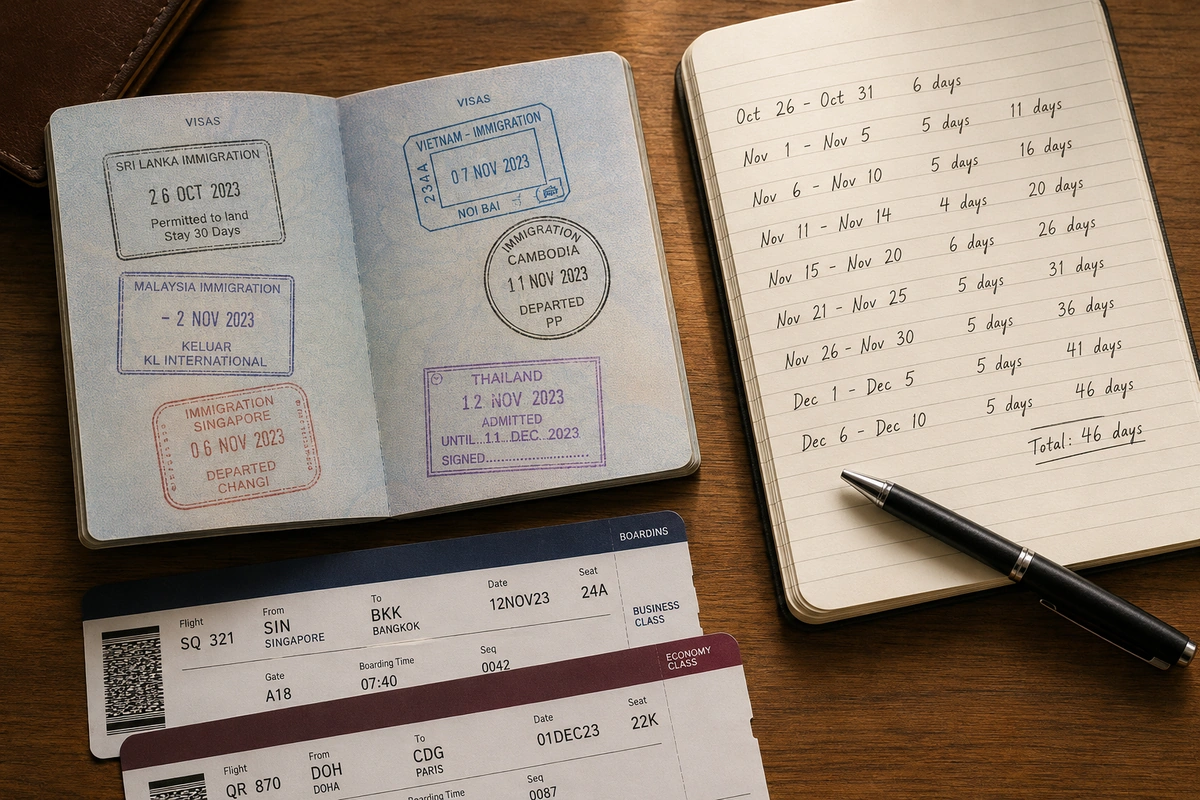 VISAS
SRI LANKA IMMIGRATION
26 OCT 2023
Permitted to land
Stay 30 Days
MALAYSIA IMMIGRATION
- 2 NOV 2023
KELUAR
KL INTERNATIONAL
IMMIGRATION
SINGAPORE
06 NOV 2023
DEPARTED
CHANGI
VISAS
VIETNAM - IMMIGRATION
234A
07 NOV 2023
NOI BAI
IMMIGRATION
CAMBODIA
11 NOV 2023
DEPARTED
PP
THAILAND
12 NOV 2023
ADMITTED
UNTIL...11...DEC...2023
SIGNED
Oct 26 - Oct 31 6 days
Nov 1 - Nov 5 5 days 11 days
Nov 6 - Nov 10 5 days 16 days
Nov 11 - Nov 14 4 days 20 days
Nov 15 - Nov 20 6 days 26 days
Nov 21 - Nov 25 5 days 31 days
Nov 26 - Nov 30 5 days 36 days
Dec 1 - Dec 5 5 days 41 days
Dec 6 - Dec 10 5 days 46 days
Total: 46 days
BOARDINS
Flight From To Date Seat
SQ 321 SIN BKK 12NOV23 24A
SINGAPORE BANGKOK
BUSINESS
CLASS
Gate Boarding Time Seq
A18 07:40 0042
ECONOMY
CLASS
Flight From To Date Seat
QR 870 DOH CDG 01DEC23 22K
DOHA PARIS
Boarding Time Seq
0087